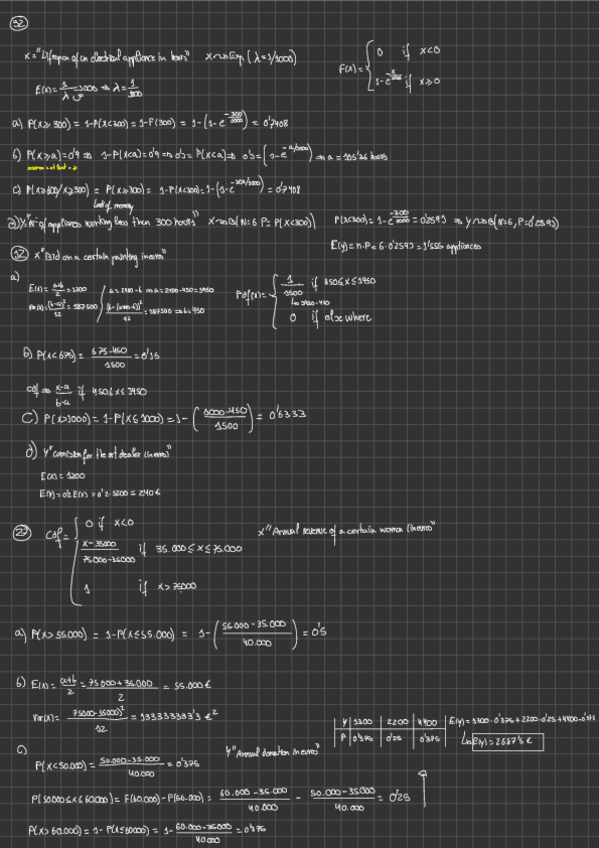 32
X="Lifespan of an electrical appliance in hours" X~Exp(λ=1/1000)
F(x)= { 0 if x<0
1-e^(-x/1000) if x≥0
E(x)=1/λ=1000 ⇒ λ=1/1000
a) P(X≥300) = 1-P(X<300) = 1-F(300) = 1-(1-e^(-300/1000)) = 0'7408
b) P(X≥a)=0'9 ⇒ 1-P(X<a)=0'9 ⇒ 0'1=P(X<a) ⇒ 0'1=(1-e^(-a/1000)) ⇒ a=105'36 hours
c) = P(X≥300) = 1-P(X<300) = 1-(1-e^(-300/1000)) = 0'7408
Lack of memory
d) Y="Nº of appliances working less than 300 hours" X~B(N=6 P=P(X<300)) P(X<300)=1-e^(-300/1000)=0'2592 ⇒ Y~B(N=6, P=0'2592)
E(Y)=n·P=6·0'2592=1'5552 appliances
12 X"Bid on a certain painting in euros"
a)
E(x)=(a+b)/2=1200
Var(x)=(b-a)²/12=187500
Pdf(x)= { 1/1500 if 450≤x≤1950
1950-450
0 if elsewhere
b) P(X<675)= (675-450)/1500 =0'15
Cdf ⇒ (x-a)/(b-a) if 450≤x≤1950
C) P(X>1000)=1-P(X≤1000)=1-((1000-450)/1500)= 0'6333
d) Y"Comission for the art dealer (in euros)"
E(x)=1200
E(Y)=0'2 E(x)=0'2·1200=240€
27 Cdf= { 0 if x<0
(x-35000)/(75000-35000) if 35.000≤x≤75.000
1 if x>75000
X"Annual revenue of a certain woman (in euros)"
a) P(X>55.000) = 1-P(X≤55.000) = 1-((55.000-35.000)/40.000)=0'5
b) E(x)=(a+b)/2=(75000+35000)/2=55.000€
Var(x)=(75000-35000)²/12=133333333'3 €²
Y | 1100 | 2200 | 4400
P | 0'375 | 0'25 | 0'375
E(Y)=1100·0'375+2200·0'25+4400·0'375
E(Y)=2612'5 €
C) Y"Annual donation in euros"
P(X<50.000)=(50.000-35.000)/40.000=0'375
P(50000≤X≤60000)=F(60.000)-F(50.000)=(60.000-35000)/40.000 - (50.000-35000)/40.000 = 0'25
P(X>60.000)=1-P(X≤60000)=1-(60.000-35000)/40.000=0'375